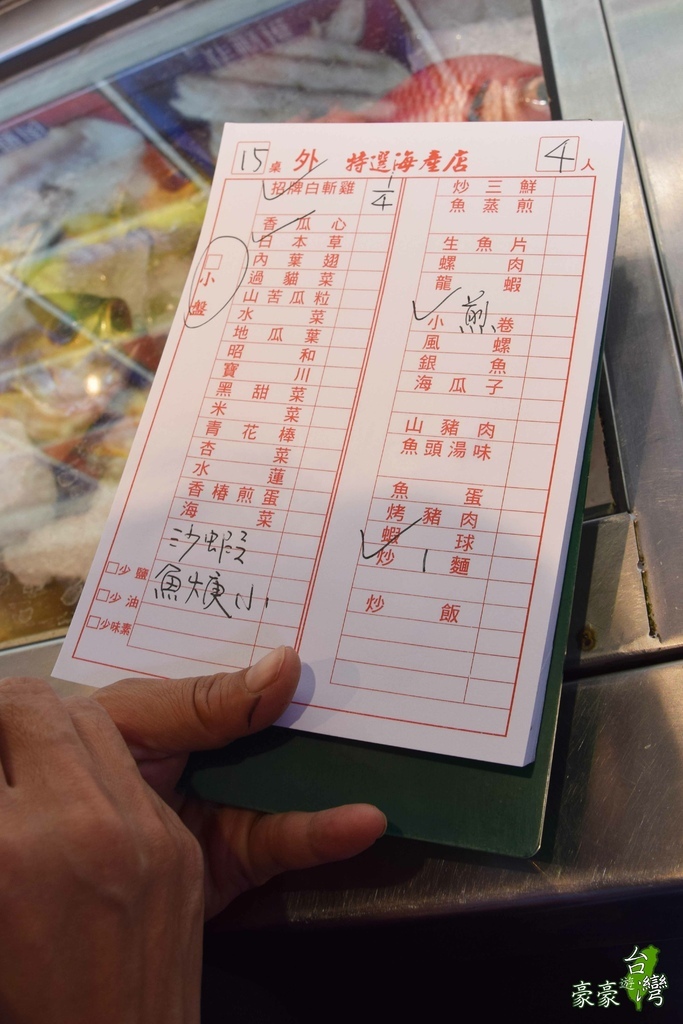 15 桌 外 特選海產店 4 人
招牌白斬雞 1/4
香瓜心
白本草
內葉翅
過貓菜
山苦瓜粒
水菜
地瓜葉
昭和
寶川
黑甜菜
米菜
青花棒
杏菜
水蓮
香椿煎蛋
海菜
沙蝦
魚焿小
□小盤
□少鹽
□少油
□少味素
炒三鮮
魚蒸煎
生魚片
螺肉
龍蝦
小煎卷
風螺
銀魚
海瓜子
山豬肉
魚頭湯味
魚蛋
烤豬肉
蝦球
炒麵 1
炒飯
豪豪遊台灣